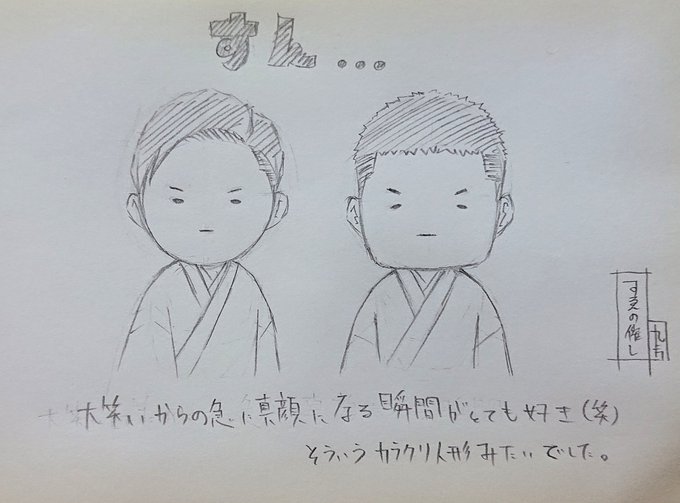 すん...
すゑの催し
大笑いからの急に真顔になる瞬間がとても好き(笑)
そういうカラクリ人形みたいでした。